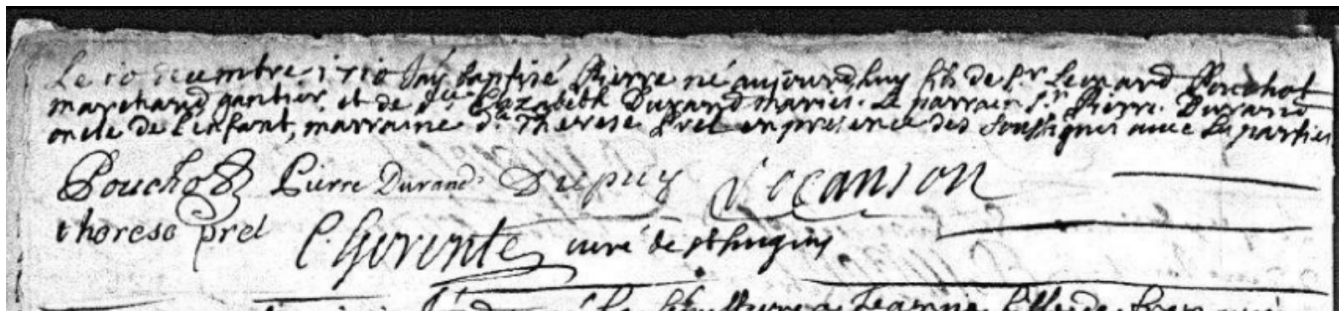 Le 10 decembre 1710 Jay baptisé Pierre né aujourdhuy fils de Sr Leonard Pouchot
marchand gantier et de dlle Elizabeth Durand mariés. Le parrain Sr Pierre Durand
oncle de l'enfant, marraine dlle Therese Prel en presence des soussignés avec les parties
Pouchot Pierre Durand Dupuy Vocanson
therese prel C. Gerente curé de st hugues